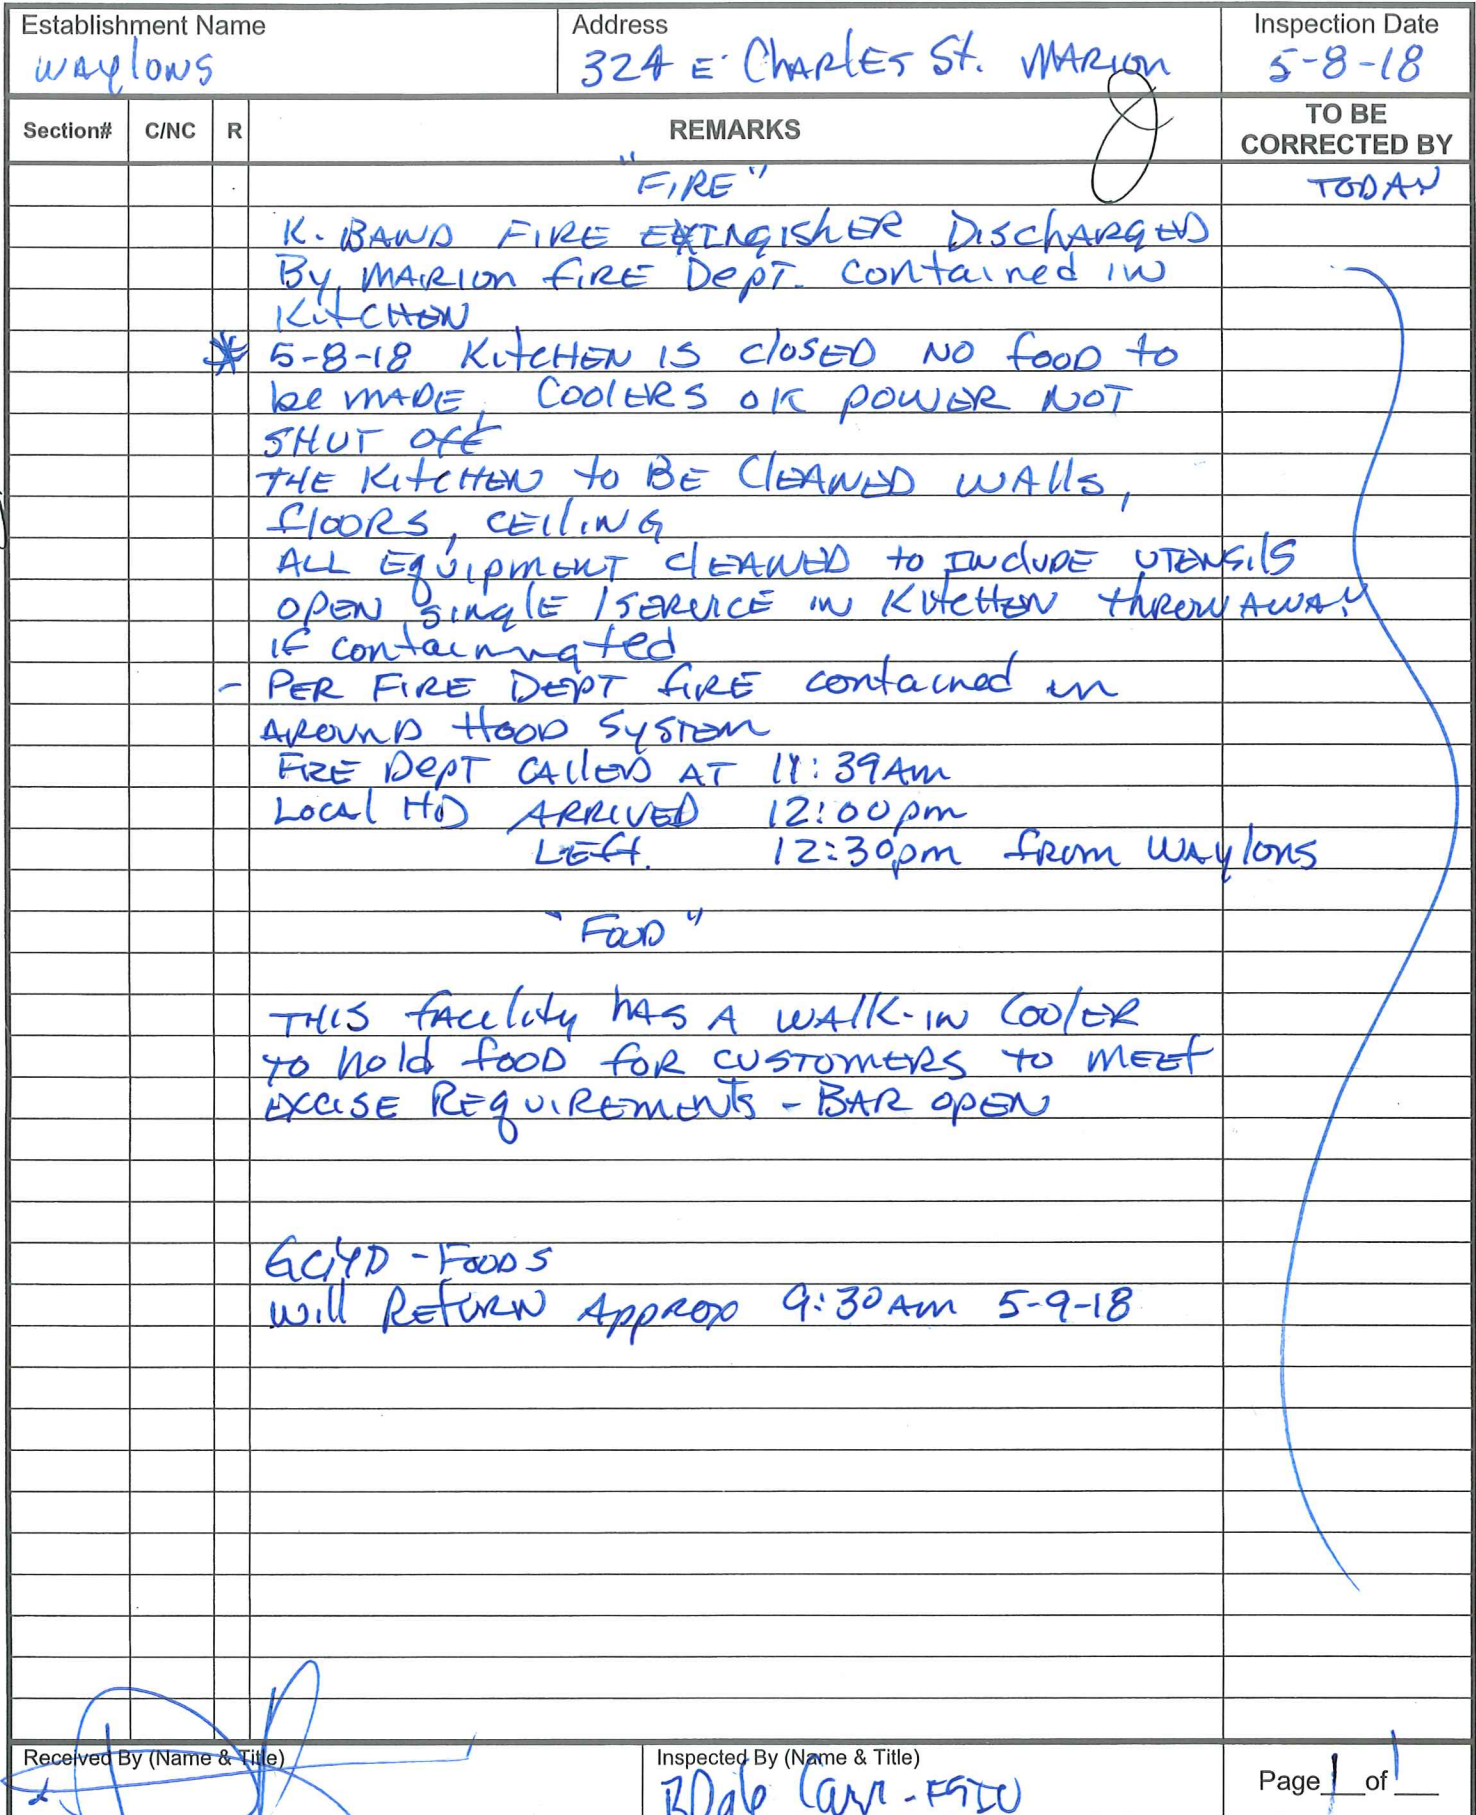 Establishment Name Address Inspection Date
Waylons 324 E. Charles St. Marion 5-8-18
Section# C/NC R REMARKS TO BE CORRECTED BY
"FIRE" TODAY
K. BAND FIRE EXTINGISHER DISCHARGED
By MARION FIRE DEPT. contained in
KITCHEN
* 5-8-18 KITCHEN IS CLOSED NO food to
be MADE, COOLERS OK POWER NOT
SHUT OFF
THE KITCHEN to BE CLEANED WALLS,
FLOORS, CEILING
ALL EQUIPMENT CLEANED to INCLUDE UTENSILS
OPEN SINGLE / SERVICE IN KITCHEN THROW AWAY
IF contaminated
- PER FIRE DEPT FIRE contained in
AROUND HOOD SYSTEM
FIRE DEPT CALLED AT 11:39 AM
LOCAL HD ARRIVED 12:00 pm
LEFT. 12:30 pm from WAYLONS
"FOOD"
THIS facility has A WALK-IN COOLER
TO hold FOOD FOR CUSTOMERS TO MEET
EXCISE REQUIREMENTS - BAR OPEN
GCHD - FOODS
Will RETURN Approx 9:30 AM 5-9-18
Received By (Name & Title) Inspected By (Name & Title) Page 1 of 1
Carr